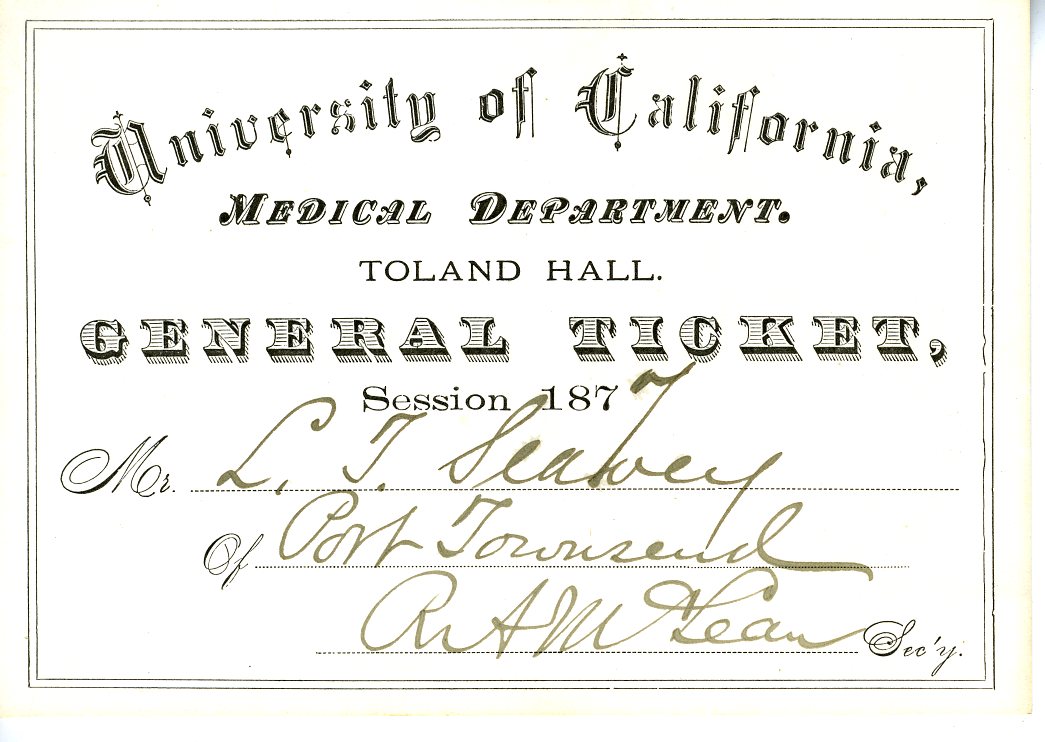 University of California,
MEDICAL DEPARTMENT.
TOLAND HALL.
GENERAL TICKET,
Session 1877
Mr. L. T. Seavey
Of Port Townsend
R. A. McLean Sec'y.